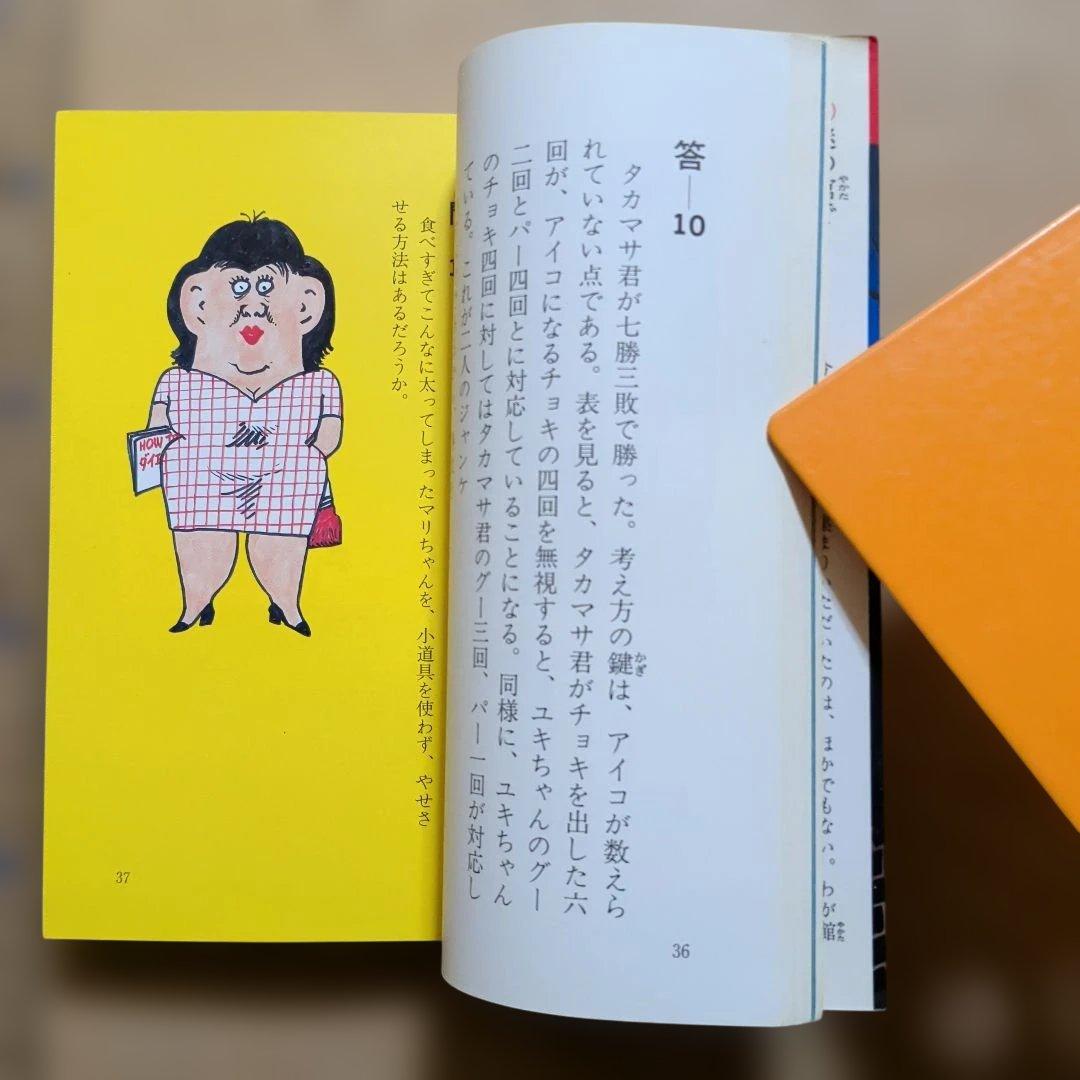 答―10
タカマサ君が七勝三敗で勝った。考え方の鍵は、アイコが数えら
かぎ
れていない点である。表を見ると、タカマサ君がチョキを出した六
回が、アイコになるチョキの四回を無視すると、ユキちゃんのグー
二回とパー四回とに対応していることになる。同様に、ユキちゃん
のチョキ四回に対してはタカマサ君のグー三回、パー一回が対応し
ている。これが二人のジャンケ
36
食べすぎてこんなに太ってしまったマリちゃんを、小道具を使わず、やせさ
せる方法はあるだろうか。
HOW
ダイ
37
いただいたのは、ほかでもない。わが館
やかた